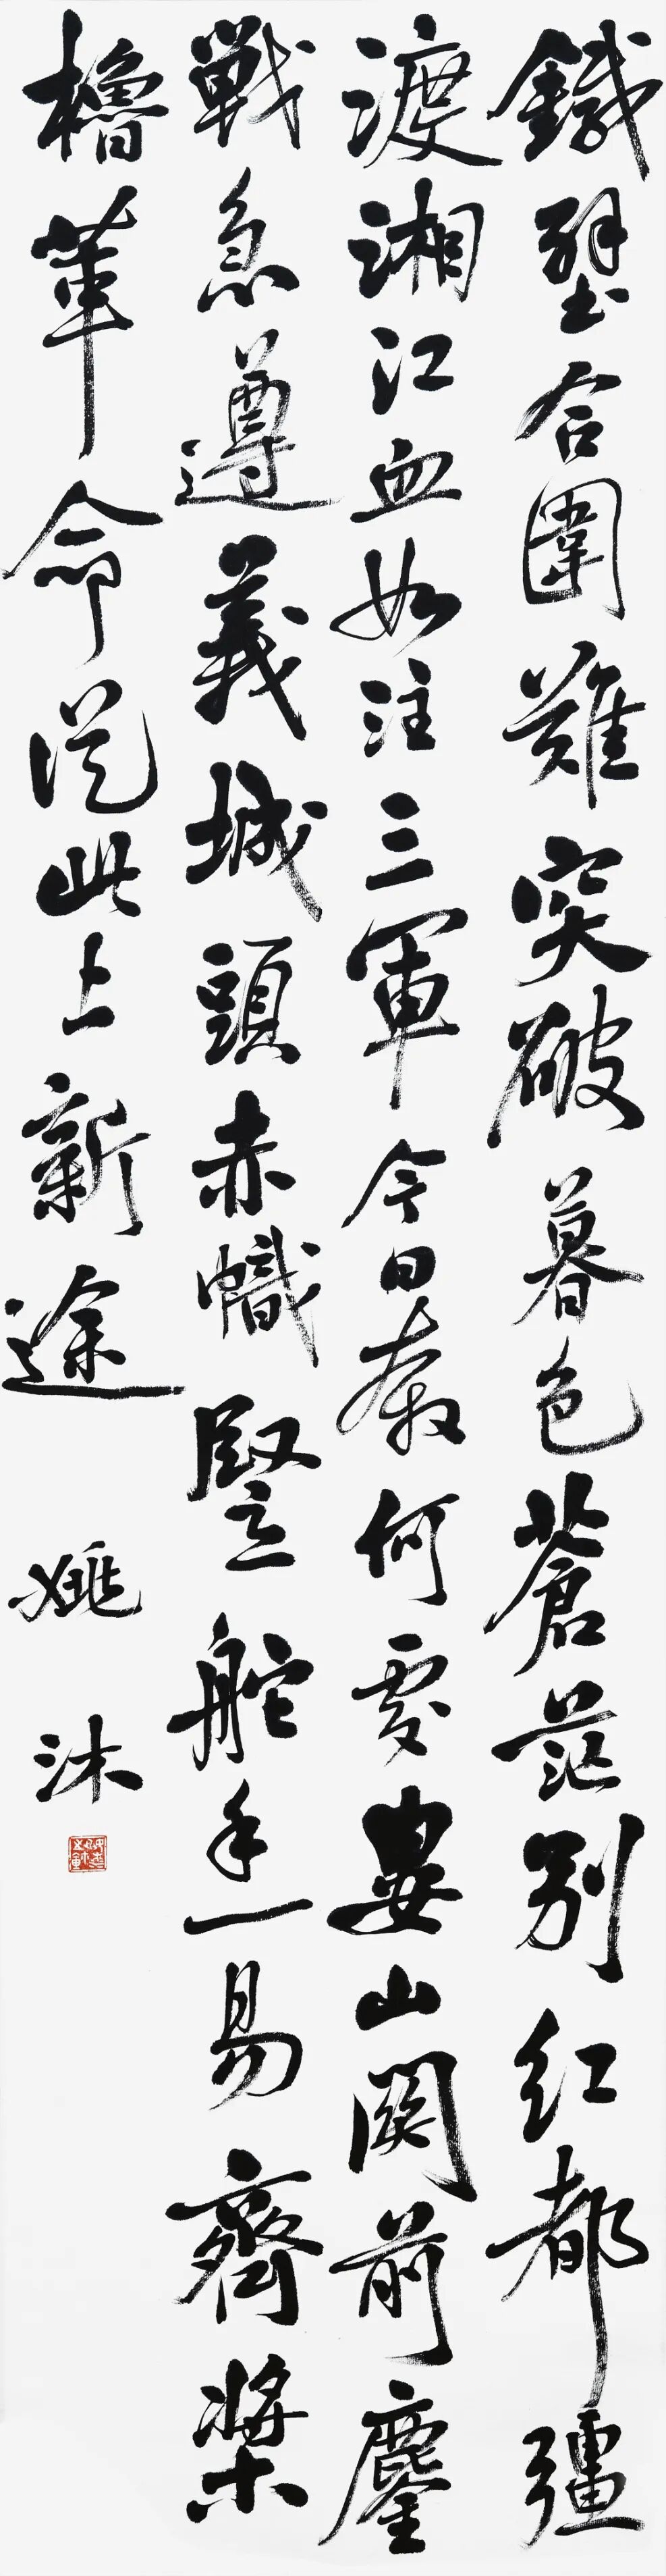 鐵壁合圍難突破暮色蒼茫别红都彊
渡湘江血如注三軍今日教何處婁山関前鏖
戰急遵義城頭赤幟豎舵手一易齊槳
櫓革命從此上新途
姚沐